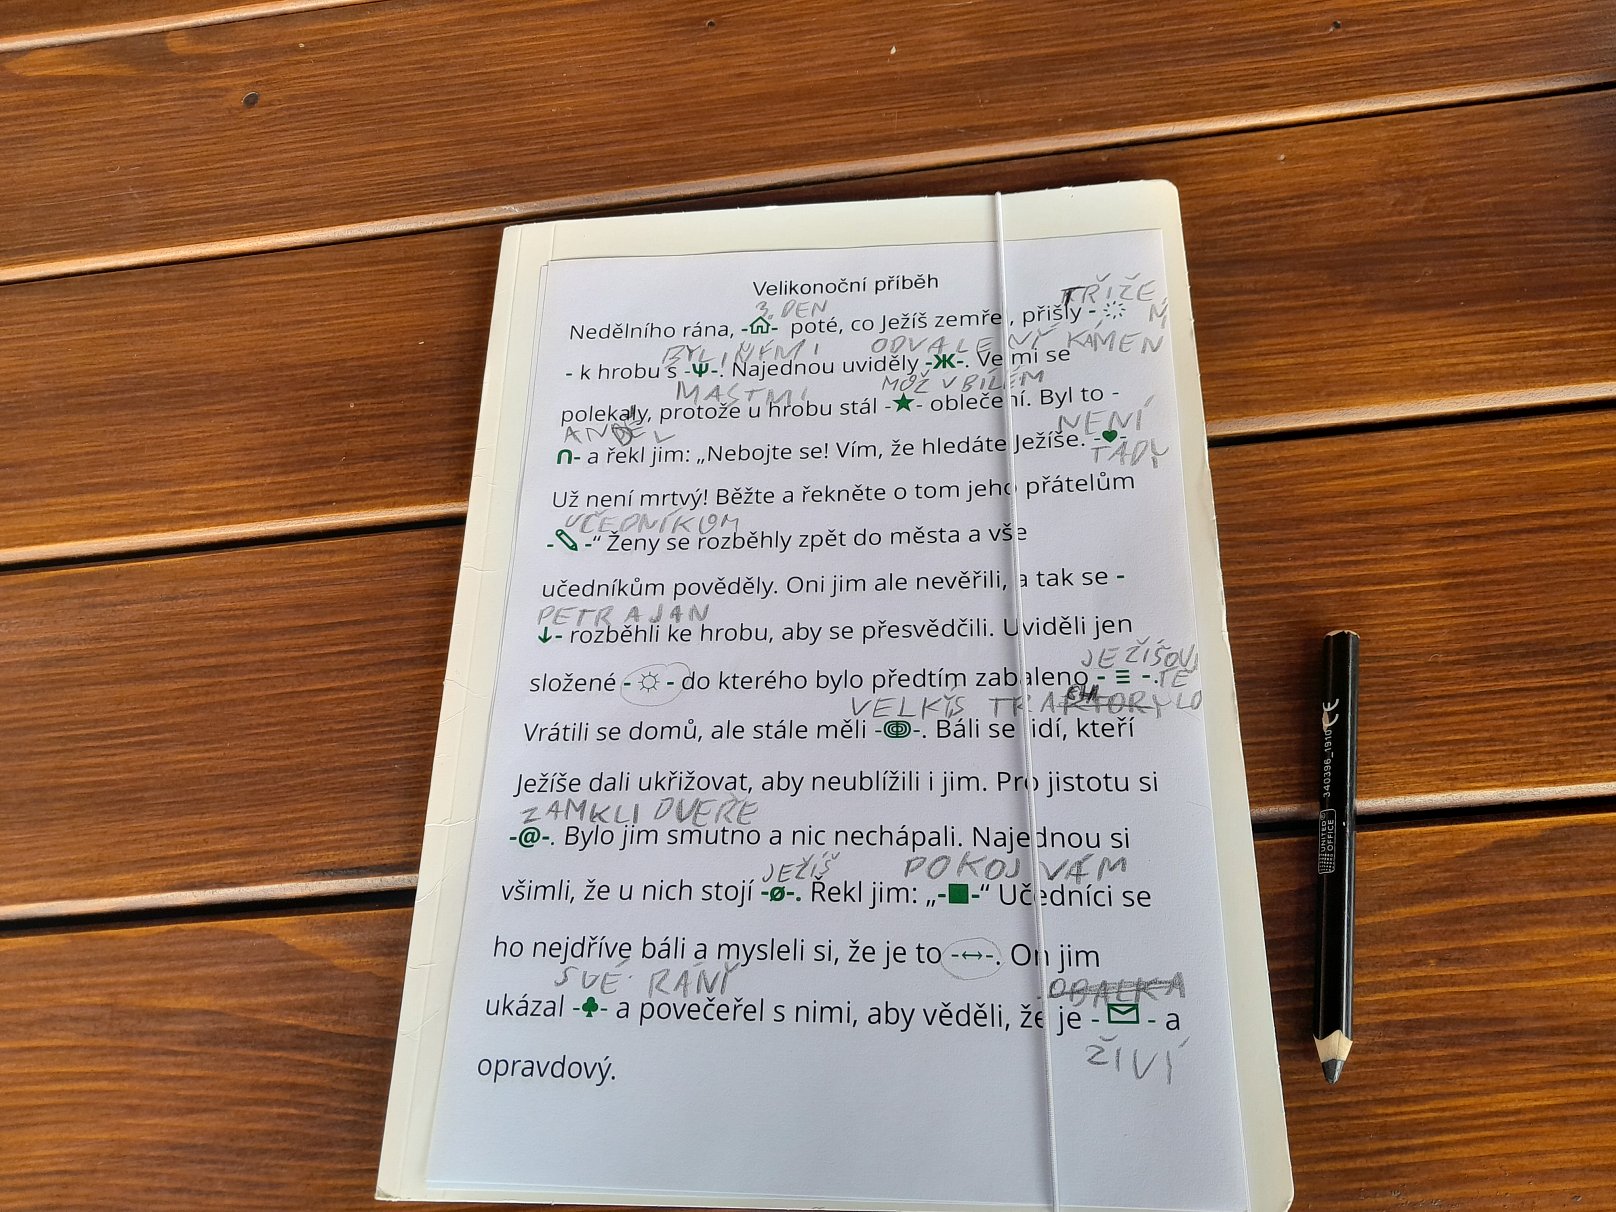 Velikonoční příběh
3. DEN
KŘÍŽE
Nedělního rána, -⌂- poté, co Ježíš zemřel, přišly -
BYLINÝMI ODVALENÝ KÁMEN
- k hrobu s -Ψ-. Najednou uviděly -Ж-. Velmi se
MASTMI MOŽ V BÍLÉM
polekaly, protože u hrobu stál -★- oblečení. Byl to -
ANDĚL NENÍ
∩- a řekl jim: „Nebojte se! Vím, že hledáte Ježíše. -♥-
TADY
Už není mrtvý! Běžte a řekněte o tom jeho přátelům
UČEDNÍKOM
-✎-“ Ženy se rozběhly zpět do města a vše
učedníkům pověděly. Oni jim ale nevěřili, a tak se -
PETR A JAN
↓- rozběhli ke hrobu, aby se přesvědčili. Uviděli jen
JEŽÍŠOVJ
složené -☼- do kterého bylo předtím zabaleno -≡-.
TĚLO
VELKÝS TRA
Vrátili se domů, ale stále měli --. Báli se lidí, kteří
Ježíše dali ukřižovat, aby neublížili i jim. Pro jistotu si
ZAMKLI DVEŘE
-@-. Bylo jim smutno a nic nechápali. Najednou si
JEŽÍŠ POKOJ VÁM
všimli, že u nich stojí -ø-. Řekl jim: „-■-“ Učedníci se
ho nejdříve báli a mysleli si, že je to -↔-. On jim
SVÉ RÁNY OBALKA
ukázal -♣- a povečeřel s nimi, aby věděli, že je -✉- a
ŽIVÍ
opravdový.
UNITED OFFICE 340396_1910 CE